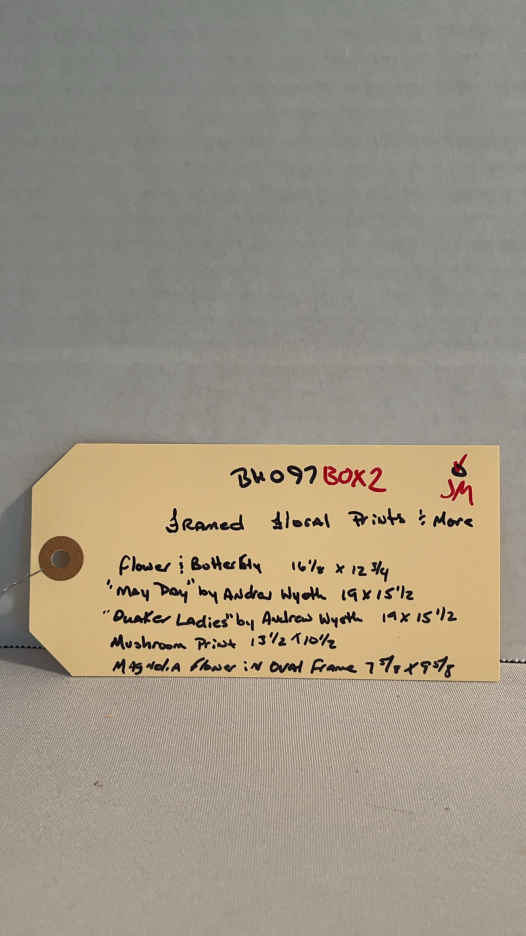 BH097 BOX2
JM
framed floral Prints & More
Flower & Butterfly 16 1/8 x 12 3/4
"May Day" by Andrew Wyeth 19 x 15 1/2
"Quaker Ladies" by Andrew Wyeth 19 x 15 1/2
Mushroom Print 13 1/2 x 10 1/2
Magnolia Flower in Oval Frame 7 5/8 x 9 5/8